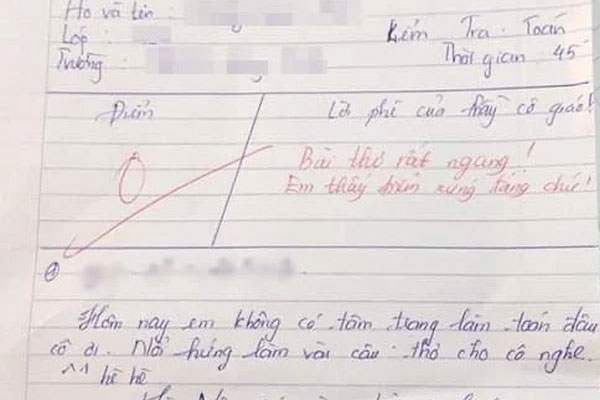 Họ và tên :
Lớp :
Trường
Kiểm Tra Toán
Thời gian : 45'
Điểm
Lời phê của thầy cô giáo!
0
Bài thơ rất ngang!
Em thấy điểm xứng đáng chứ!
Hôm nay em không có tâm trạng làm toán đâu
cô ơi. Nổi hứng làm vài câu thơ cho cô nghe.
^^ hê hê